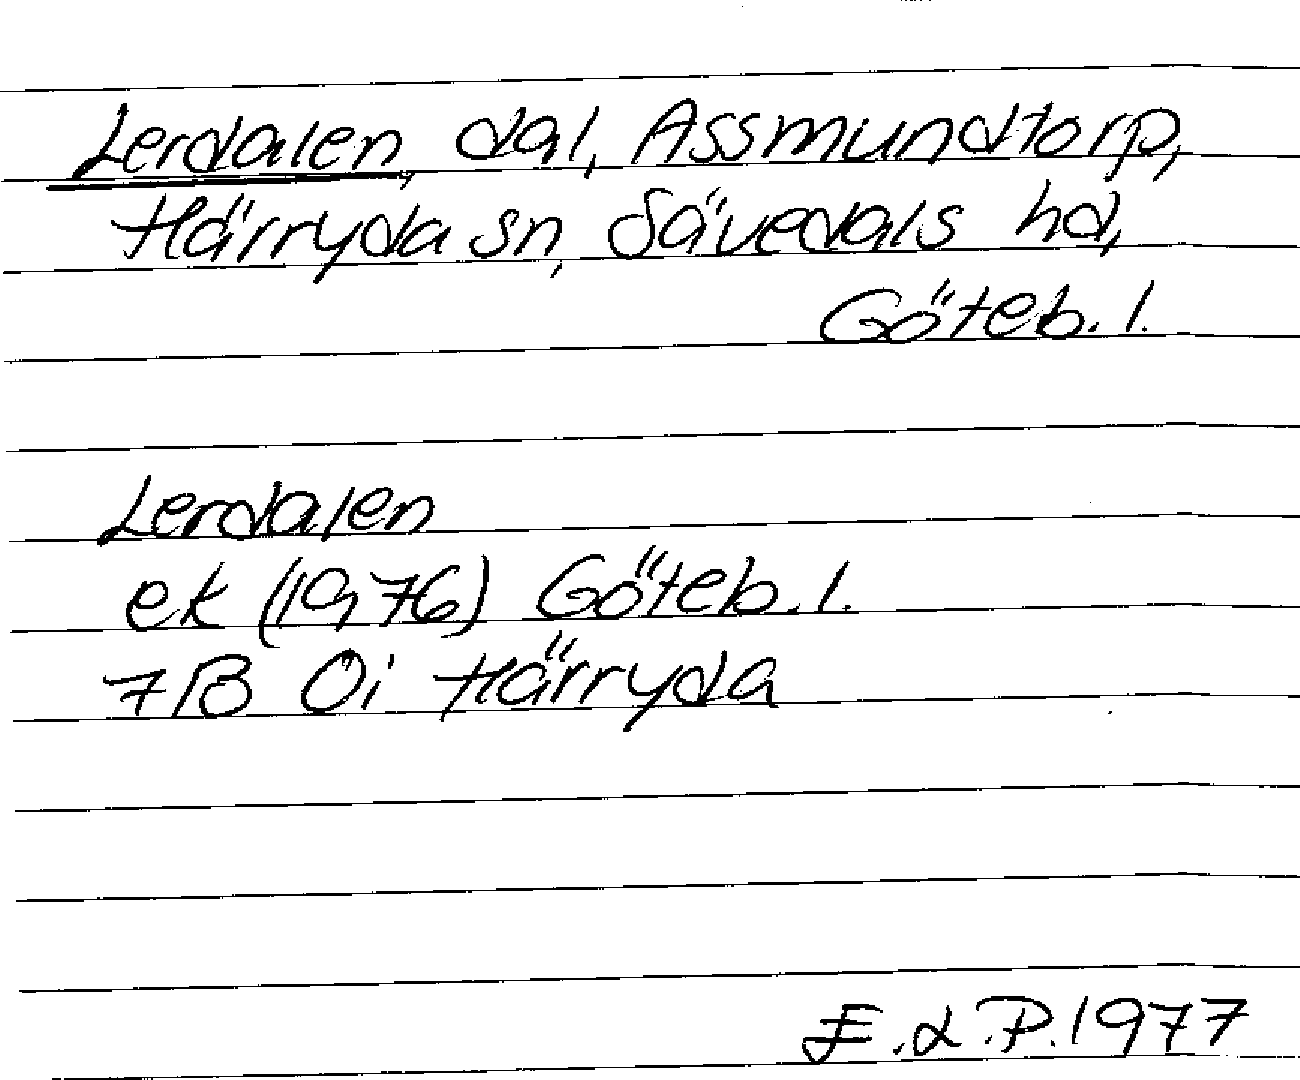 Lerdalen, dal, Assmundtorp,
Härryda sn, Sävedals hd,
Göteb. l.
Lerdalen
ek (1976) Göteb. l.
7B 0i Härryda
E.L.P. 1977